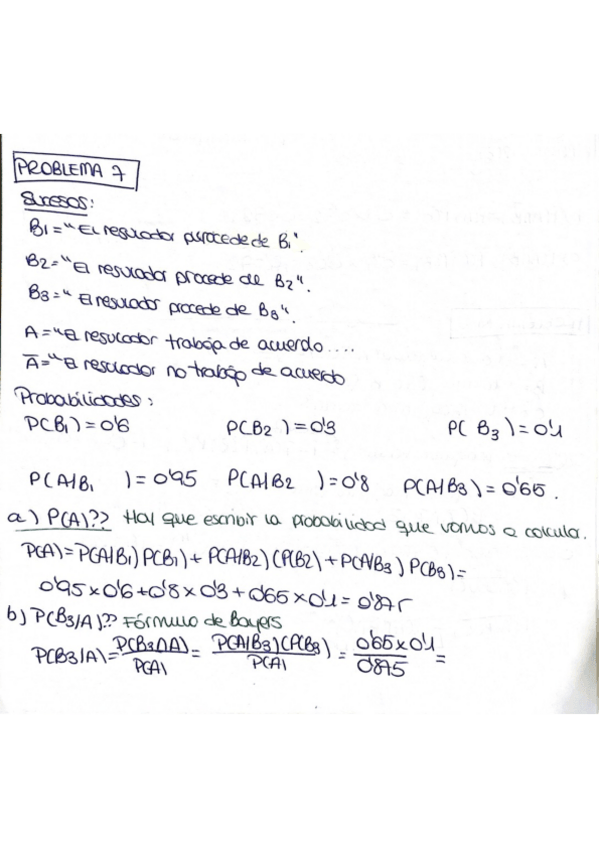 PROBLEMA 7
Sucesos:
B1="El regulador procede de B1".
B2="El regulador procede de B2".
B3="El regulador procede de B3".
A="El regulador trabaja de acuerdo ....
A̅="El regulador no trabaja de acuerdo
Probabilidades:
P(B1)=0'6 P(B2)=0'3 P(B3)=0'1
P(A/B1)=0'95 P(A/B2)=0'8 P(A/B3)=0'65.
a) P(A)?? Hay que escribir la probabilidad que vamos a calcula.
P(A)=P(A/B1)P(B1)+P(A/B2)(P(B2)+P(A/B3)P(B3)=
0'95x0'6+0'8x0'3+0'65x0'1=0'875
b) P(B3/A)?? Fórmula de Bayers
P(B3/A)=P(B3∩A)/P(A)=P(A/B3)(P(B3)/P(A)=0'65x0'1/0'875=